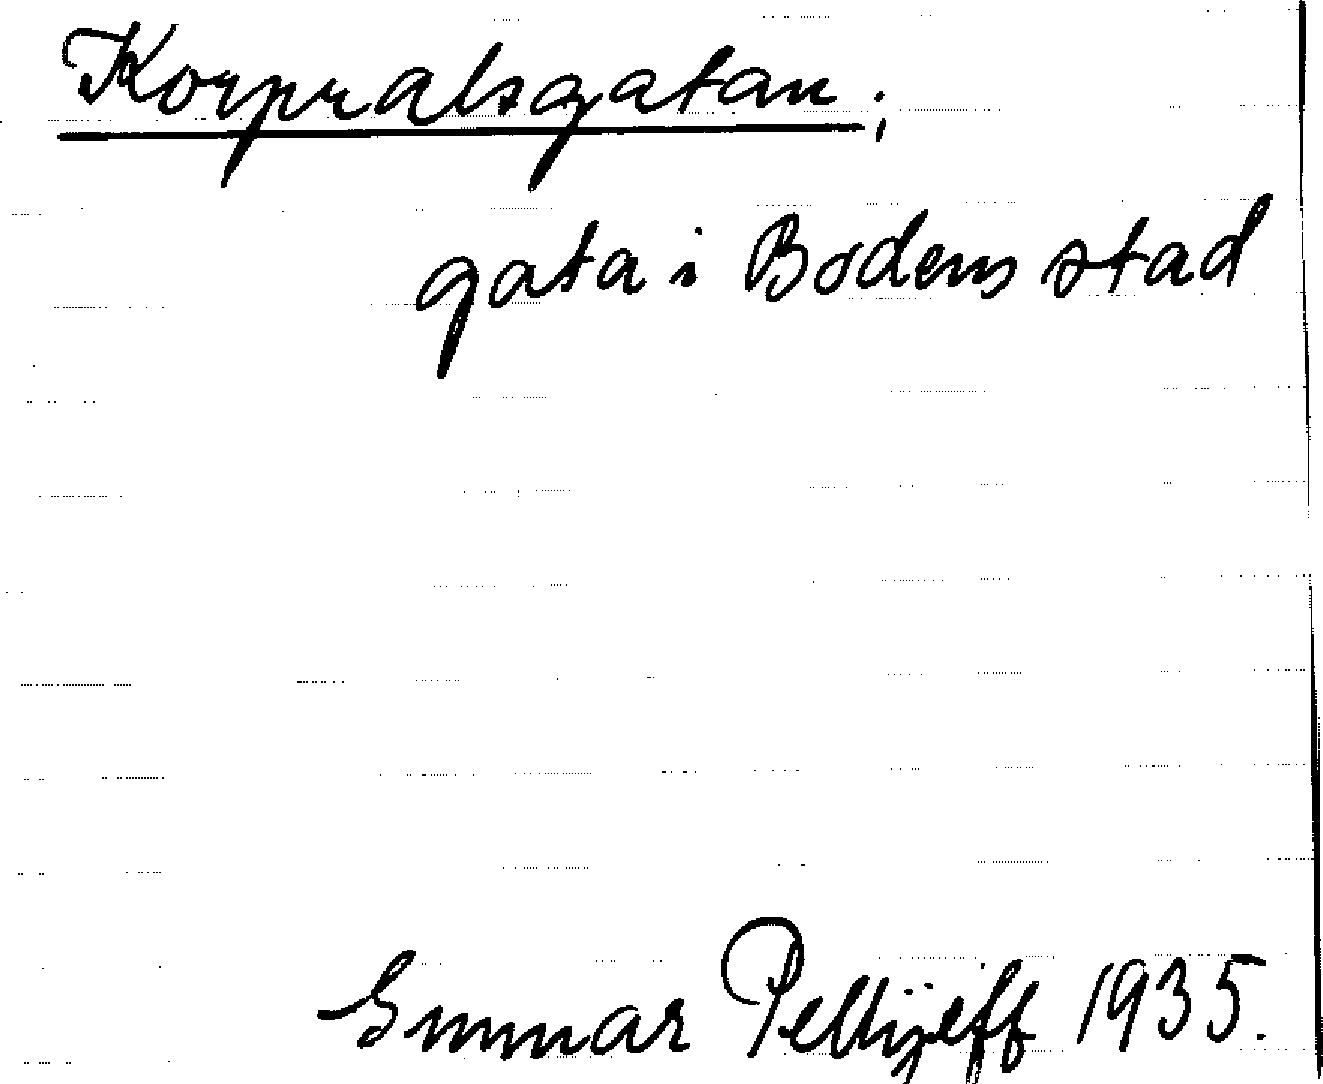 Korpralsgatan;
gata i Bodens stad
Gunnar Pellijeff 1935.